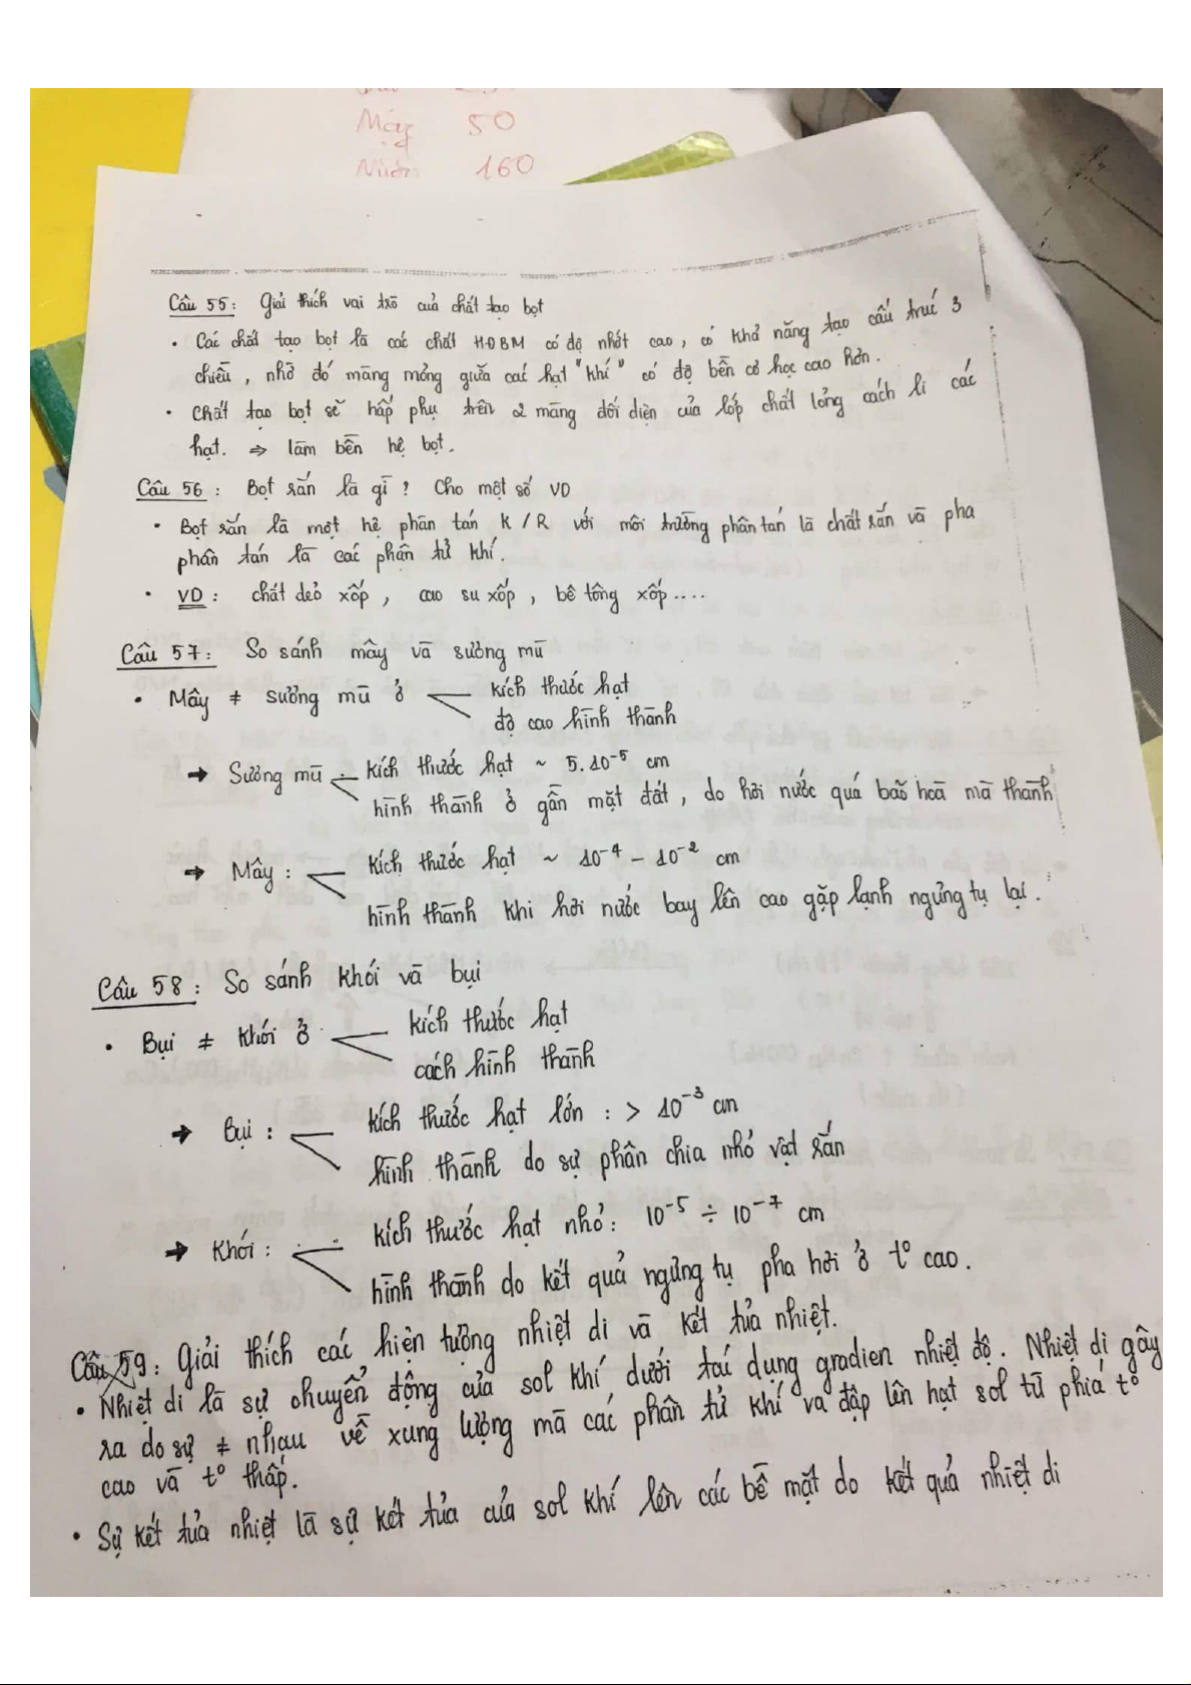 Mây 50
160
Câu 55: Giải thích vai trò của chất tạo bọt
• Các chất tạo bọt là các chất HĐBM có độ nhớt cao, có khả năng tạo cấu trúc 3
chiều, nhờ đó màng mỏng giữa các hạt "khí" có độ bền cơ học cao hơn.
• Chất tạo bọt sẽ hấp phụ trên 2 màng đối diện của lớp chất lỏng cách li các
hạt. ⇒ làm bền hệ bọt.
Câu 56: Bọt rắn là gì? Cho một số VD
• Bọt rắn là một hệ phân tán K/R với môi trường phân tán là chất rắn và pha
phân tán là các phần tử khí.
• VD: chất dẻo xốp, cao su xốp, bê tông xốp....
Câu 57: So sánh mây và sương mù
• Mây ≠ sương mù ở kích thước hạt
độ cao hình thành
→ Sương mù kích thước hạt ~ 5.10⁻⁵ cm
hình thành ở gần mặt đất, do hơi nước quá bão hoà mà thành
→ Mây: kích thước hạt ~ 10⁻⁴ – 10⁻² cm
hình thành khi hơi nước bay lên cao gặp lạnh ngưng tụ lại.
Câu 58: So sánh khói và bụi
• Bụi ≠ khói ở kích thước hạt
cách hình thành
→ Bụi: kích thước hạt lớn: > 10⁻³ cm
hình thành do sự phân chia nhỏ vật rắn
→ Khói: kích thước hạt nhỏ: 10⁻⁵ ÷ 10⁻⁷ cm
hình thành do kết quả ngưng tụ pha hơi ở t° cao.
Câu 59: Giải thích các hiện tượng nhiệt di và kết tủa nhiệt.
• Nhiệt di là sự chuyển động của sol khí dưới tác dụng gradien nhiệt độ. Nhiệt di gây
ra do sự ≠ nhau về xung lượng mà các phân tử khí va đập lên hạt sol từ phía t°
cao và t° thấp.
• Sự kết tủa nhiệt là sự kết tủa của sol khí lên các bề mặt do kết quả nhiệt di